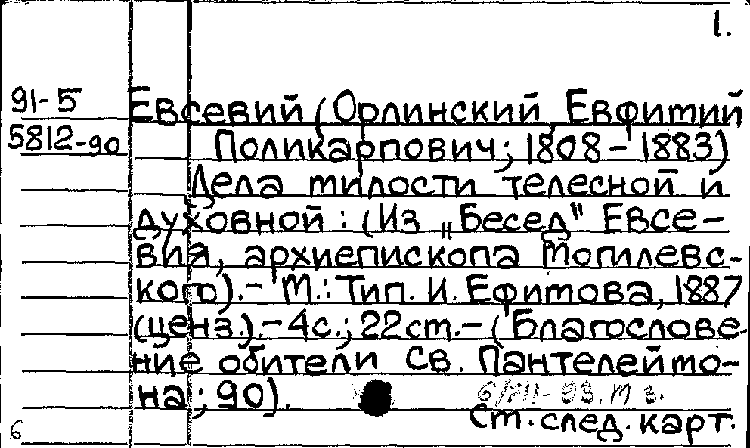 1.
91-5
5812-90
Евсевий (Орлинский, Евфимий
Поликарпович; 1808-1883)
Дела милости телесной и
духовной: (Из „Бесед" Евсе-
вия, архиепископа Могилевс-
кого).- М.: Тип. И. Ефимова, 1887
(ценз.).- 4с.; 22см.- (Благослове-
ние обители Св. Пантелеймо-
на; 90).
См. след. карт.
6